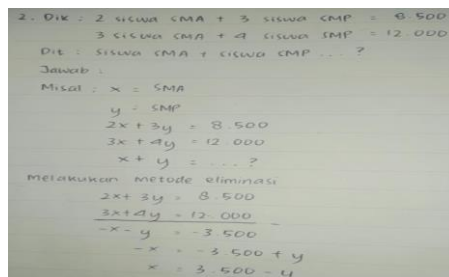 2. Dik : 2 siswa SMA + 3 siswa SMP = 8.500
3 siswa SMA + 4 siswa SMP = 12.000
Dit : siswa SMA + siswa SMP ... ?
Jawab :
Misal : x = SMA
y = SMP
2x + 3y = 8.500
3x + 4y = 12.000
x + y = ... ?
Melakukan metode eliminasi
2x + 3y = 8.500
3x + 4y = 12.000 -
-x - y = -3.500
-x = -3.500 + y
x = 3.500 - y